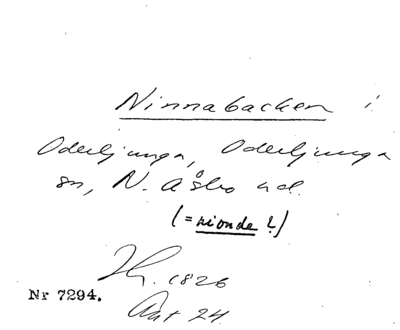 Ninnabacken i
Oderljunga, Oderljunga
sn, N. Åsbo hd.
(= nionde ?)
1826
Nr 7294.
Akt 24